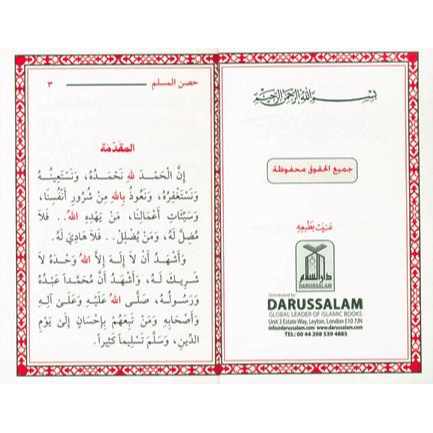 بسم الله الرحمن الرحيم
جميع الحقوق محفوظة
عنيت بطبعه
دار السلام
DARUSSALAM
Distributed by:
DARUSSALAM
GLOBAL LEADER OF ISLAMIC BOOKS
Unit 3 Estate Way, Leyton, London E10 7JN
info@darussalam.com www.darussalam.com
TEL: 00 44 208 539 4885
حصن المسلم ٣
المقدمة
إِنَّ الْحَمْدَ للهِ نَحْمَدُهُ، وَنَسْتَعِينُهُ
وَنَسْتَغْفِرُهُ، وَنَعُوذُ بِاللهِ مِنْ شُرُورِ أَنْفُسِنَا،
وَسَيِّئَاتِ أَعْمَالِنَا، مَنْ يَهْدِهِ اللهُ.. فَلَا
مُضِلَّ لَهُ، وَمَنْ يُضْلِلْ.. فَلَا هَادِيَ لَهُ.
وَأَشْهَدُ أَنْ لَا إِلَهَ إِلَّا اللهُ وَحْدَهُ لَا
شَرِيكَ لَهُ، وَأَشْهَدُ أَنَّ مُحَمَّداً عَبْدُهُ
وَرَسُولُهُ، صَلَّى اللهُ عَلَيْهِ وَعَلَى آلِهِ
وَأَصْحَابِهِ وَمَنْ تَبِعَهُمْ بِإِحْسَانٍ إِلَى يَوْمِ
الدِّينِ، وَسَلَّمَ تَسْلِيماً كَثِيراً.